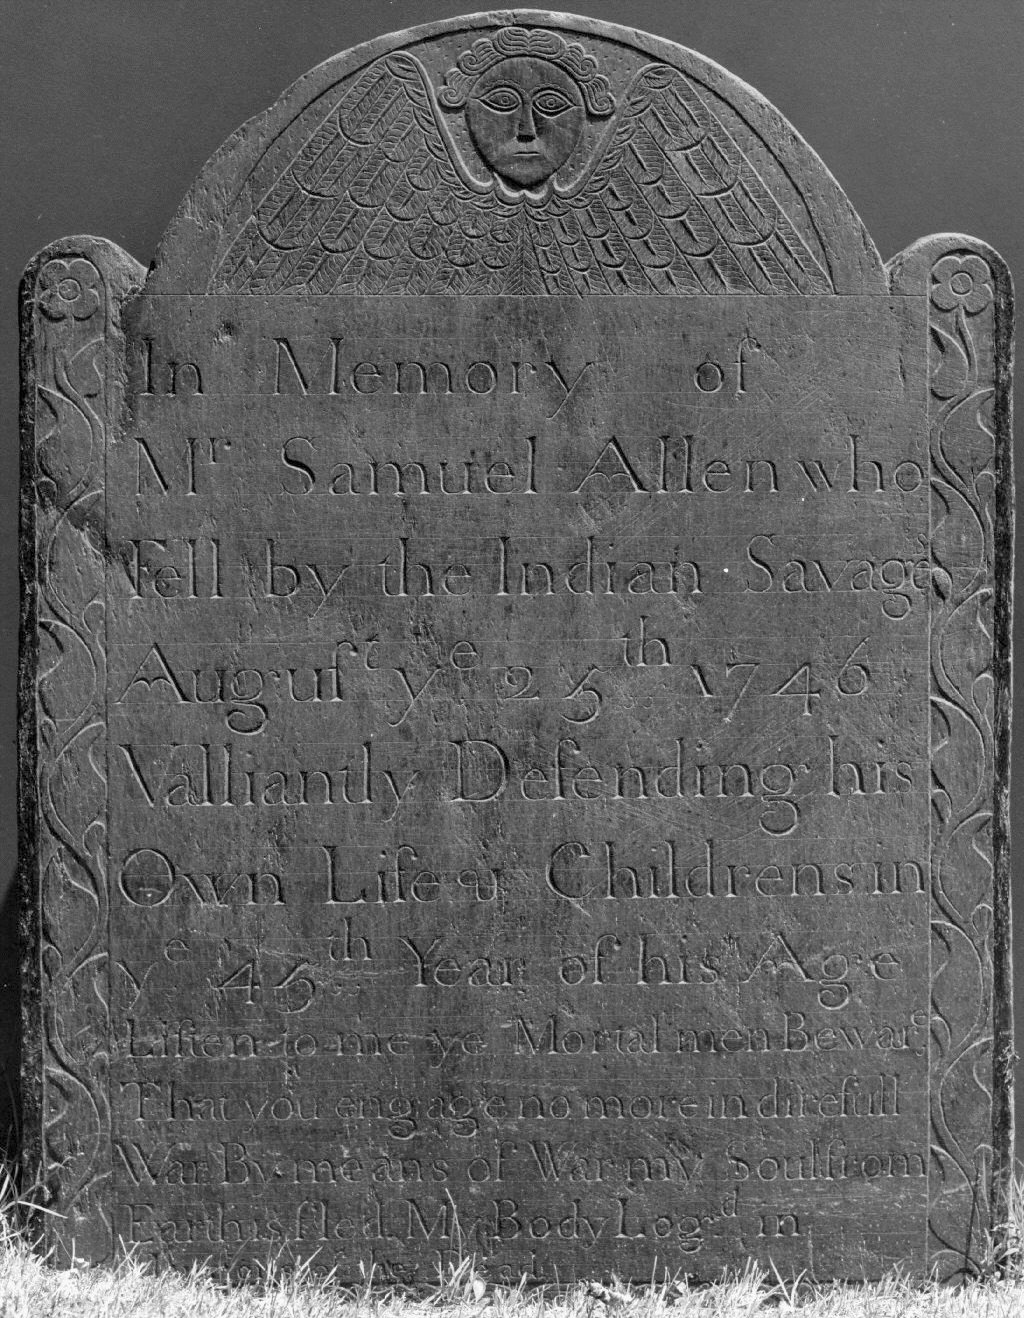 In Memory of
Mr Samuel Allen who
Fell by the Indian Savages
Auguſt ye 25th 1746
Valliantly Defending his
Own Life & Childrens in
ye 45th Year of his Age
Liſten to me ye Mortal men Beware
That you engage no more in direfull
War By means of War my Soul from
Earth is fled My Body Log'd in